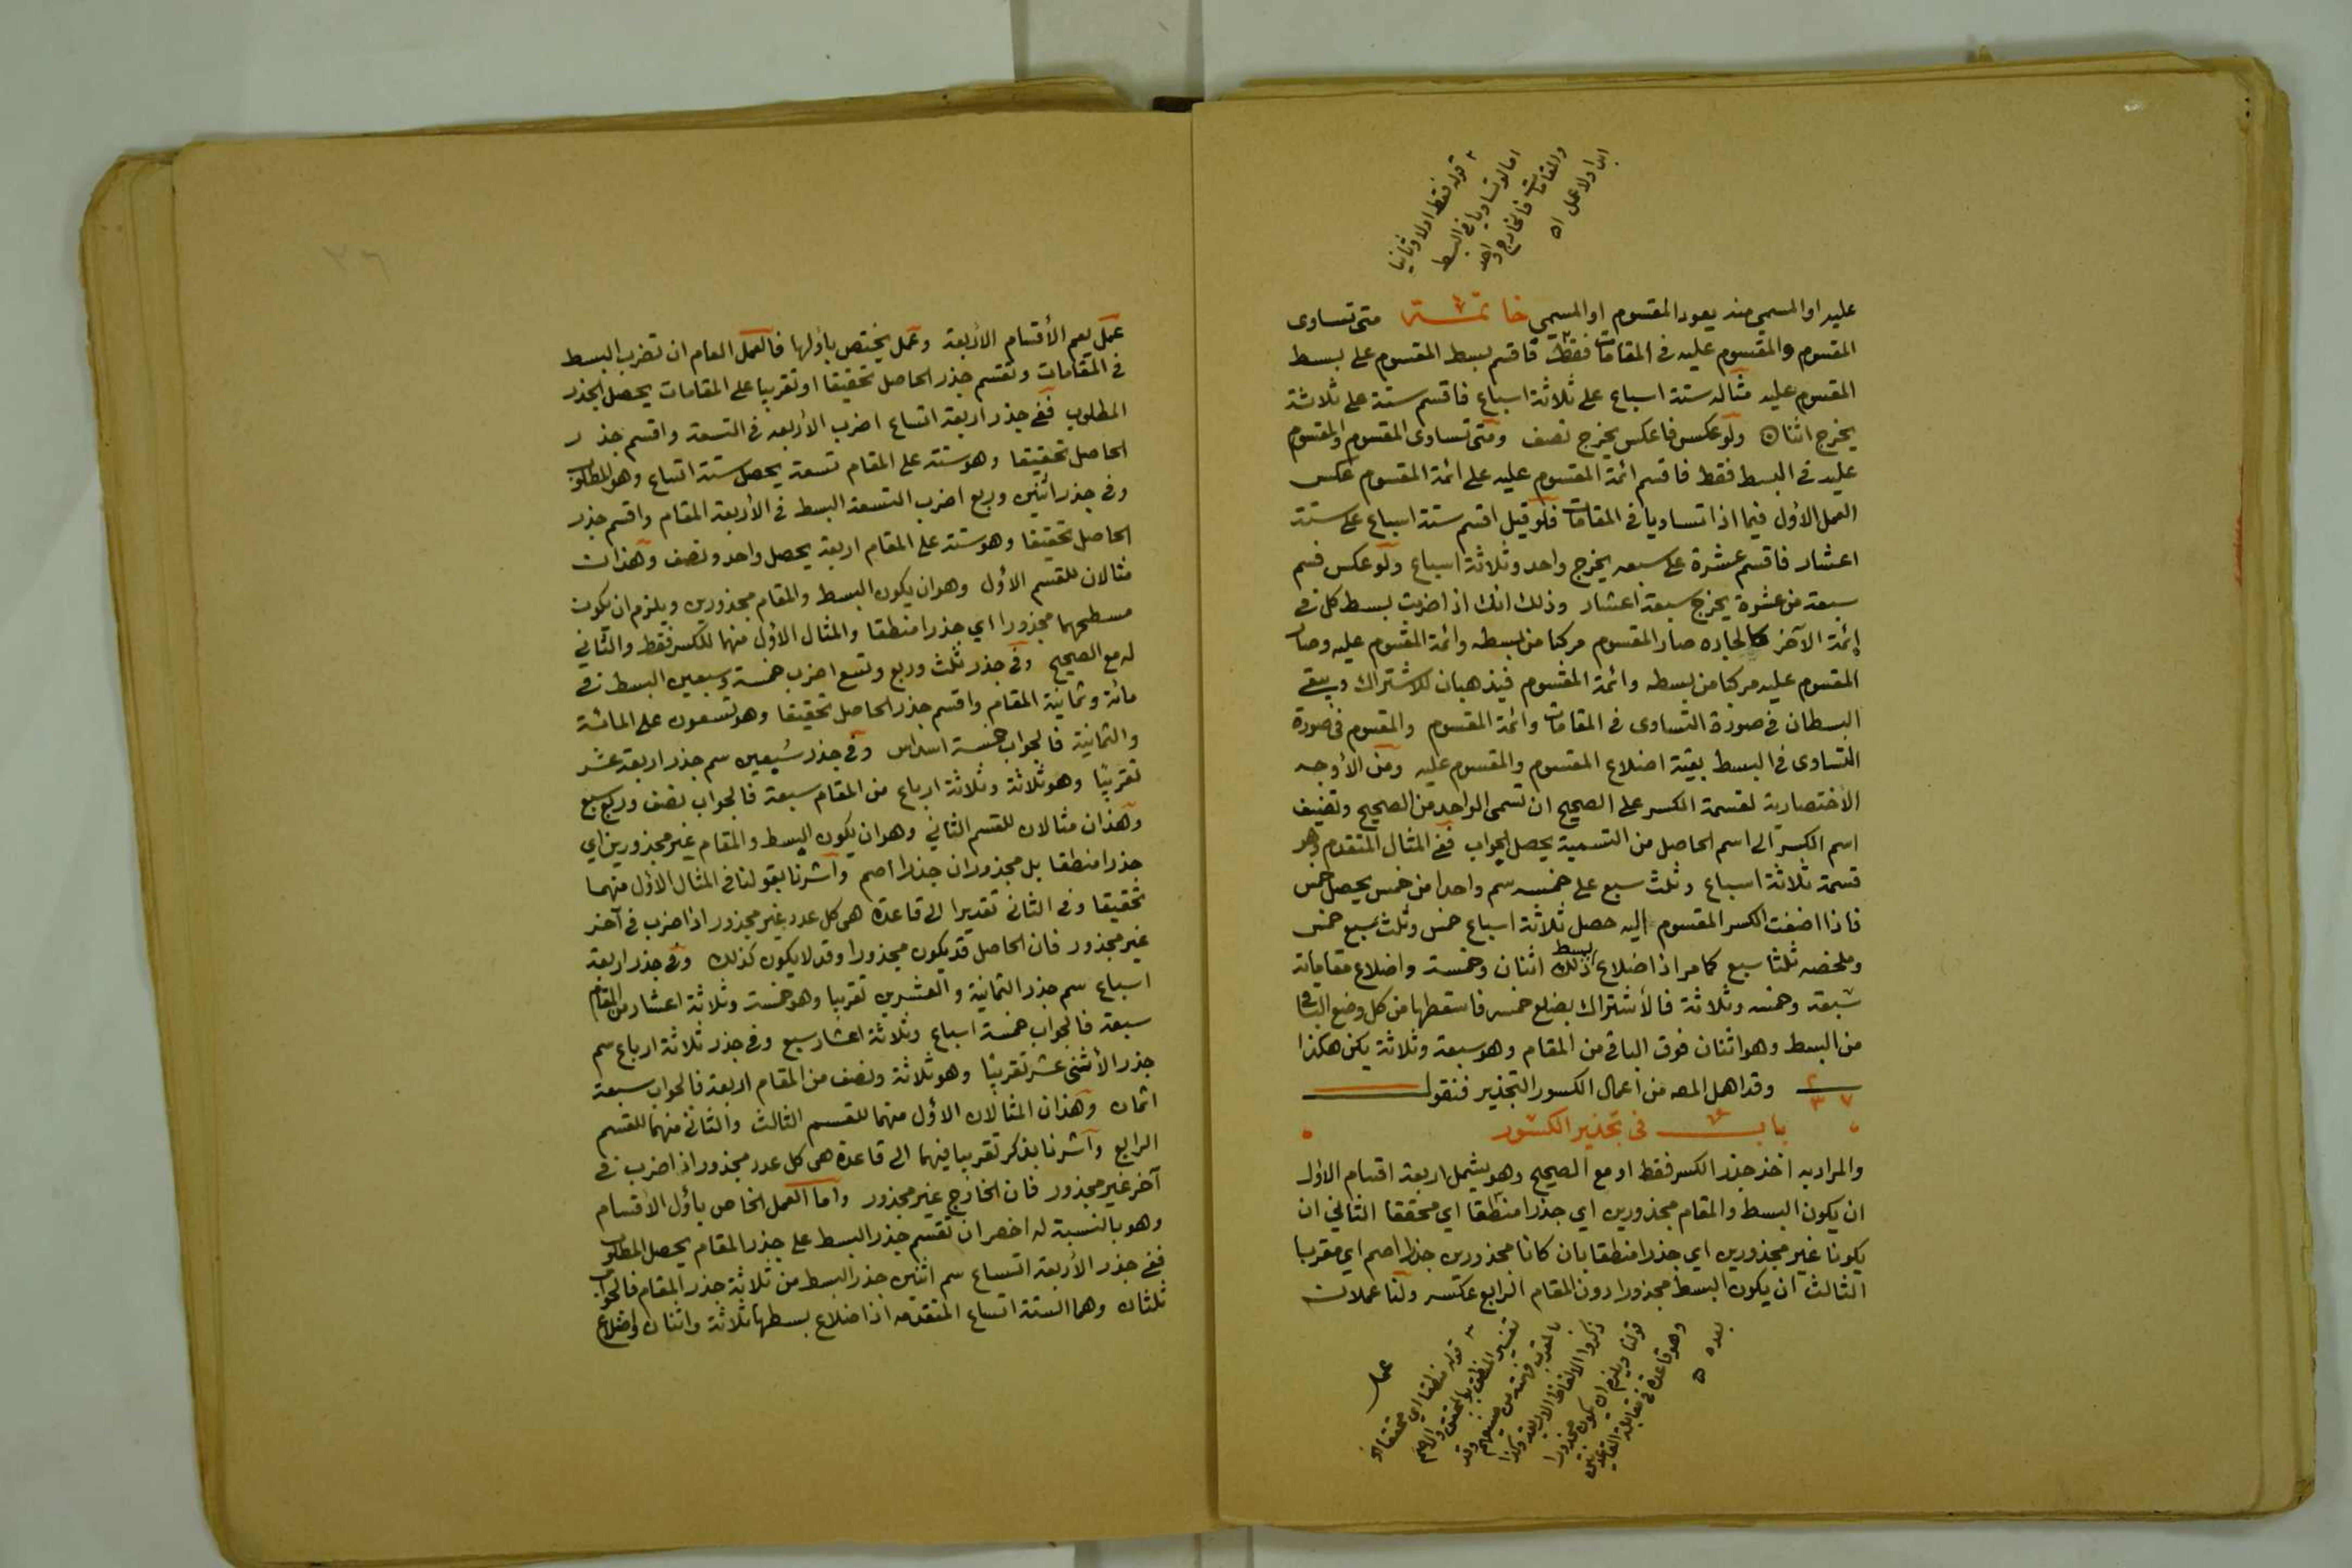 قوله فقط اولا وثانيا
اما لو تساويا في البسط
والمقامات فالخارج واحد
ابدا ولا عمل اه
عليه او المسمي منه يعود المقسوم او المسمي خاتمـــة متى تساوى
المقسوم والمقسوم عليه في المقامات فقط فاقسم بسط المقسوم على بسط
المقسوم عليه مثاله ستة اسباع على ثلاثة اسباع فاقسم ستة على ثلاثة
يخرج اثنان ولو عكس فاعكس يخرج نصف ومتى تساوى المقسوم والمقسوم
عليه في البسط فقط فاقسم ائمة المقسوم عليه على ائمة المقسوم عكس
العمل الاول فيما اذا تساويا في المقامات فلو قيل اقسم ستة اسباع على ستة
اعشار فاقسم عشرة على سبعه يخرج واحد وثلاثة اسباع ولو عكس فسم
سبعة من عشرة يخرج سبعة اعشار وذلك انك اذا ضربت بسط كل في
ائمة الآخر كالجاده صار المقسوم مركبا من بسطه وائمة المقسوم عليه وصار
المقسوم عليه مركبا من بسطه وائمة المقسوم فيذهبان للاشتراك ويبقى
البسطان في صورة التساوى في المقامات وائمة المقسوم والمقسوم في صورة
التساوى في البسط بقية اضلاع المقسوم والمقسوم عليه ومن الأوجه
الاختصارية لقسمة الكسر على الصحيح ان تسمى الواحد من الصحيح وتضيف
اسم الكسر الى اسم الحاصل من التسمية يحصل الجواب ففي المثال المتقدم وهو
قسمة ثلاثة اسباع وثلث سبع على خمسه سم واحدا من خمس يحصل خمس
فاذا اضفت الكسر المقسوم اليه حصل ثلاثة اسباع خمس وثلث سبع خمس
وملخصه ثلثا سبع كما مر اذ اضلاع بسط ذلك اثنان وخمسة واضلاع مقاماته
سبعة وخمسه وثلاثة فالأشتراك بضلع خمسه فاسقطها من كل وضع الباقى
من البسط وهو اثنان فوق الباقي من المقام وهو سبعة وثلاثة يكن هكذا
٢ / ٣ ٧ وقد اهمل المصه من اعمال الكسور التجذير فنقول
بابـــ في تجذير الكسور
والمراد به اخذ جذر الكسر فقط او مع الصحيح وهو يشمل اربعة اقسام الاول
ان يكون البسط والمقام مجذورين اي جذرا منطقا اي محققا الثاني ان
يكونا غير مجذورين اي جذرا منطقا بان كانا مجذورين جذرا اصم اي مقربا
الثالث ان يكون البسط مجذورا دون المقام الرابع عكسه ولنا عملان
قوله منطقا اي محققا
تفسير المنطق بالمحقق والاصم
ذكروا الالفاظ الاربعة
قولنا ويلزم ان يكون مجذورا
وهو قاعدة في مقابلة القاعدتين
بعده ه
عمل
عمل يعم الأقسام الاربعة وعمل يختص باولها فالعمل العام ان تضرب البسط
في المقامات وتقسم جذر الحاصل تحقيقا او تقريبا على المقامات يحصل الجذر
المطلوب ففي جذر اربعة اتساع اضرب الأربعه في التسعة واقسم جذر
الحاصل تحقيقا وهو ستة على المقام تسعة يحصل ستة اتساع وهو المطلوب
وفي جذر اثنين وربع اضرب التسعة البسط في الأربعة المقام واقسم جذر
الحاصل تحقيقا وهو ستة على المقام اربعة يحصل واحد ونصف وهذان
مثالان للقسم الاول وهو ان يكون البسط والمقام مجذورين ويلزم ان يكون
مسطحهما مجذورا اي جذرا منطقا والمثال الاول منهما للكسر فقط والثاني
له مع الصحيح وفي جذر ثلث وربع وتسع اضرب خمسة وسبعين البسط في
مائة وثمانية المقام واقسم جذر الحاصل تحقيقا وهو تسعون على المائة
والثمانية فالجواب خمسة اسداس وفي جذر سبعين سم جذر اربعة عشر
تقريبا وهو ثلاثة وثلاثة ارباع من المقام سبعة فالجواب نصف وربع سبع
وهذان مثالان للقسم الثاني وهو ان يكون البسط والمقام غير مجذورين اي
جذرا منطقا بل مجذوران جذرا اصم وأشرنا بقولنا في المثال الاول منهما
تحقيقا وفي الثاني تقديرا الى قاعدة هى كل عدد غير مجذور اذا ضرب في آخر
غير مجذور فان الحاصل قد يكون مجذورا وقد لا يكون كذلك وفي جذر اربعة
اسباع سم جذر الثمانية والعشرين تقريبا وهو خمسة وثلاثة اعشار من المقام
سبعة فالجواب خمسة اسباع وثلاثة اعشار سبع وفي جذر ثلاثة ارباع سم
جذر الأثنى عشر تقريبا وهو ثلاثة ونصف من المقام اربعة فالجواب سبعة
اثمان وهذان المثالان الاول منهما للقسم الثالث والثاني منهما للقسم
الرابع وأشرنا بذكر تقريبا فيهما الى قاعدة هى كل عدد مجذور اذا ضرب في
آخر غير مجذور فان الخارج غير مجذور وأما العمل الخاص بأول الاقسام
وهو بالنسبة له اخصر ان تقسم جذر البسط على جذر المقام يحصل المطلوب
ففي جذر الأربعة اتساع سم اثنين جذر البسط من ثلاثة جذر المقام فالجواب
ثلثان وهما الستة اتساع المتقدمه اذ اضلاع بسطها ثلاثة واثنان واضلاع